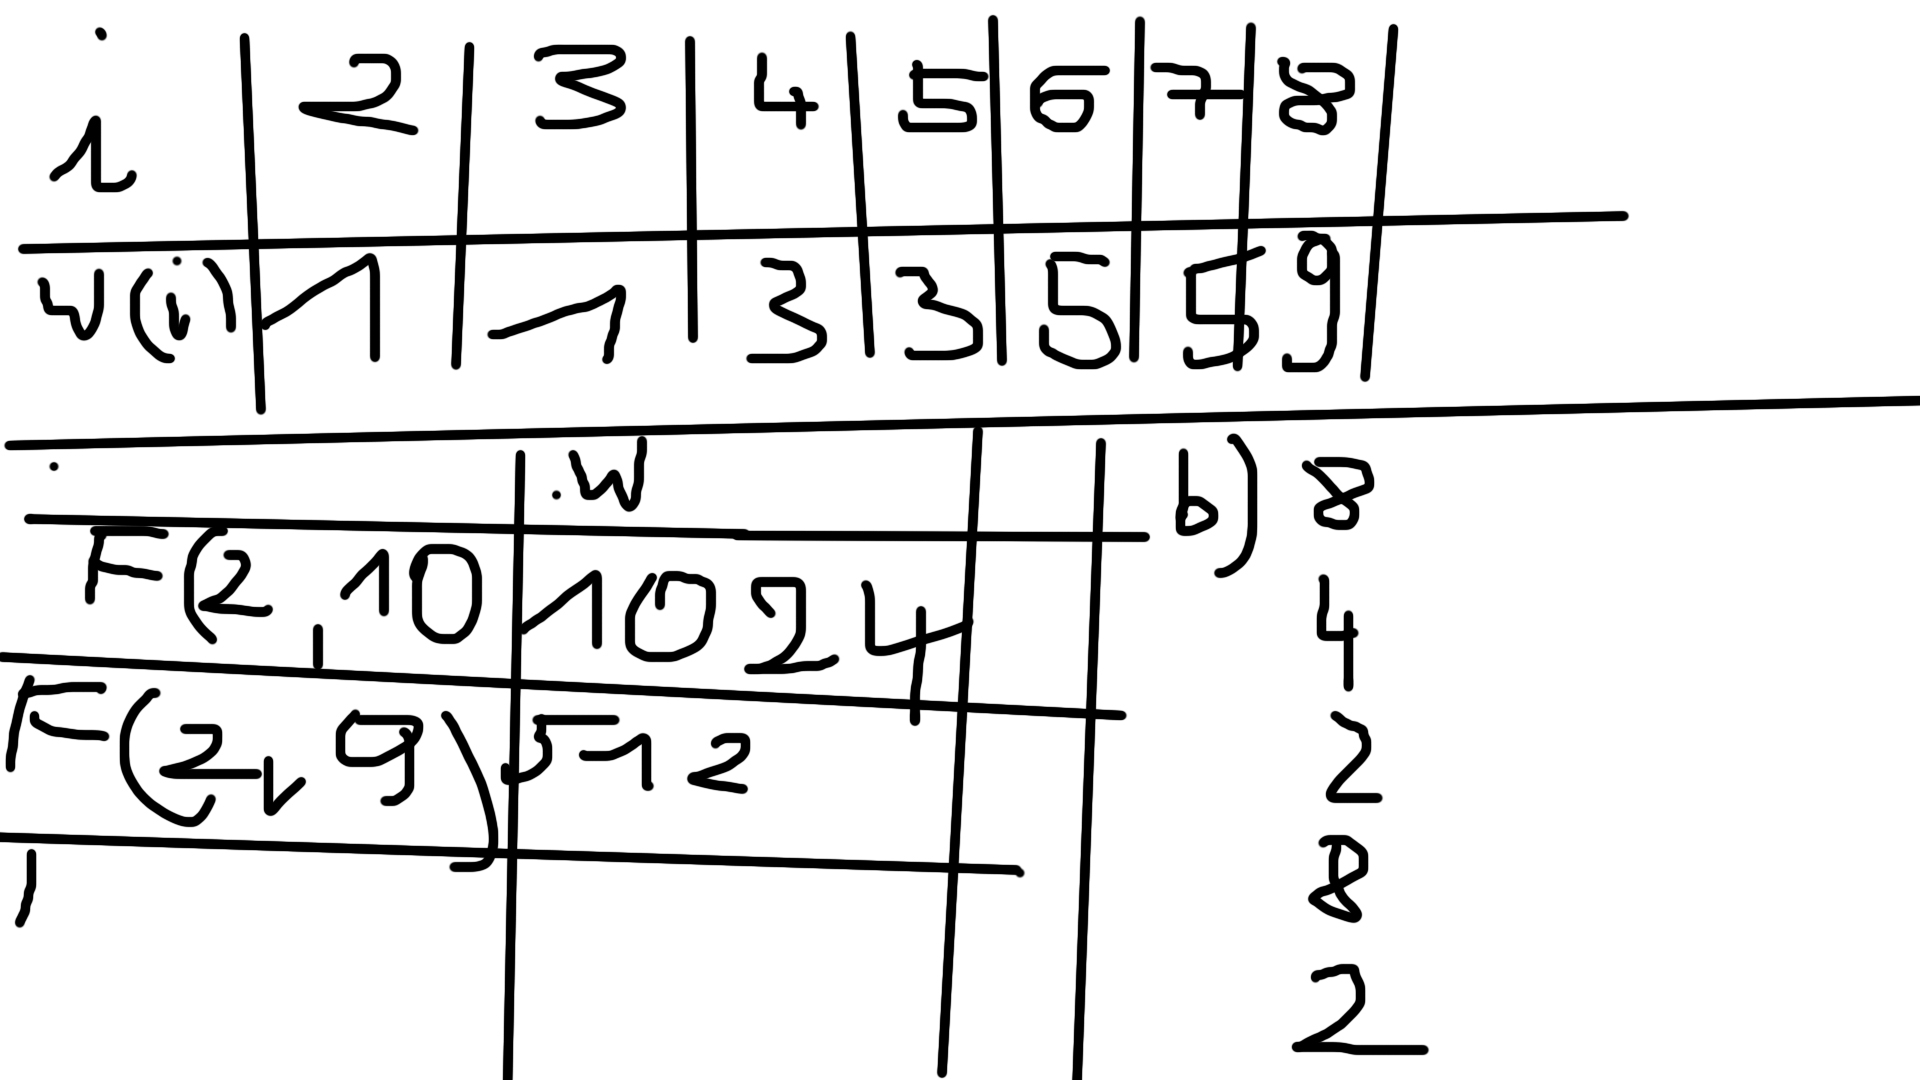 i 2 3 4 5 6 7 8
W(i) 1 1 3 3 5 5 9
W
F(2,10 1024
F(2,9) 512
b) 8
4
2
8
2